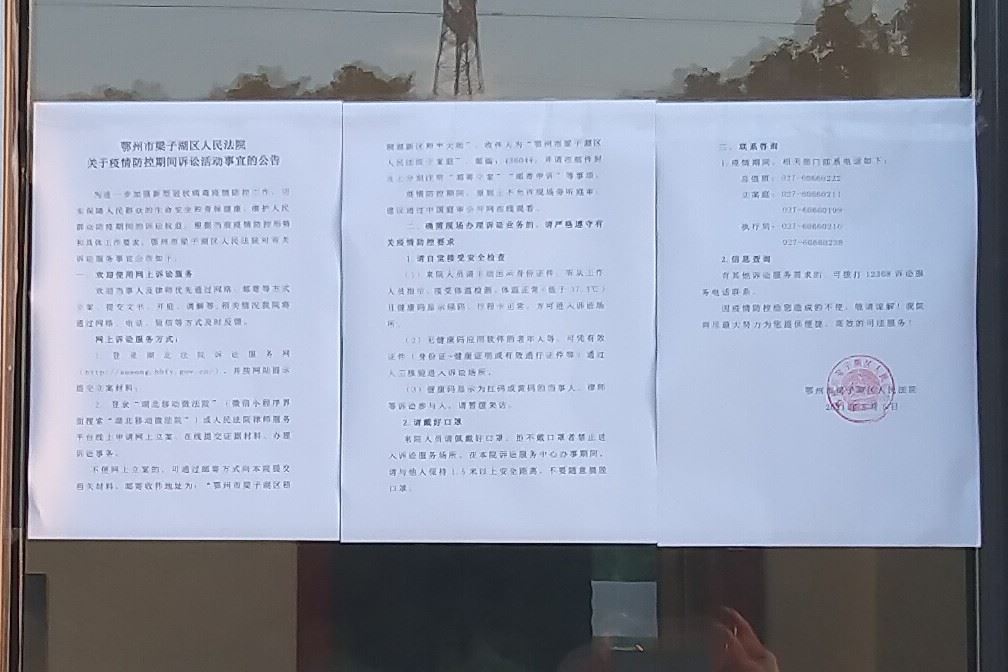 鄂州市梁子湖区人民法院
关于疫情防控期间诉讼活动事宜的公告
为进一步加强新型冠状病毒疫情防控工作，切
实保障人民群众的生命安全和身体健康，维护人民
群众防疫期间的诉讼权益，根据当前疫情防控形势
和具体工作要求，鄂州市梁子湖区人民法院对有关
诉讼服务事宜公告如下：
一、欢迎使用网上诉讼服务
欢迎当事人及律师优先通过网络、邮寄等方式
立案、提交文书、开庭、调解等，相关情况我院将
通过网络、电话、短信等方式及时反馈。
网上诉讼服务方式：
1、登录湖北法院诉讼服务网
(http://susong.hbfy.gov.cn/)，并按网站提示
提交立案材料；
2、登录“湖北移动微法院”（微信小程序界
面搜索“湖北移动微法院”）或人民法院律师服务
平台线上申请网上立案、在线提交证据材料、办理
诉讼事务。
不便网上立案的，可通过邮寄方式向本院提交
相关材料，邮寄收件地址为：“鄂州市梁子湖区梧
桐湖新区，收件人为“鄂州市梁子湖区
人民法院立案庭”，邮编：436044，并请在邮件封
面上分别注明“邮寄立案”“邮寄申诉”等事项。
疫情防控期间，原则上不允许现场旁听庭审，
建议通过中国庭审公开网在线观看。
二、确需现场办理诉讼业务的，请严格遵守有
关疫情防控要求
1.请自觉接受安全检查
（1）来院人员请主动出示身份证件，听从工作
人员指示，接受体温检测，体温正常（低于37.3℃）
且健康码显示绿码、行程卡正常，方可进入诉讼场
所。
（2）无健康码应用软件的老年人等，可凭有效
证件（身份证+健康证明或有效通行证件等）通过
人工核验进入诉讼场所。
（3）健康码显示为红码或黄码的当事人、律师
等诉讼参与人，请暂缓来访。
2.请戴好口罩
来院人员请佩戴好口罩，拒不戴口罩者禁止进
入诉讼服务场所。在本院诉讼服务中心办事期间，
请与他人保持1.5米以上安全距离，不要随意摘脱
口罩。
三、联系咨询
1.疫情期间，相关部门联系电话如下：
总值班：027-60660222
立案庭：027-60660211
027-60660199
执行局：027-60660216
027-60660238
2.信息查询
有其他诉讼服务需求的，可拨打12368诉讼服
务电话联系。
因疫情防控给您造成的不便，敬请谅解！我院
将尽最大努力为您提供便捷、高效的司法服务！
鄂州市梁子湖区人民法院
2021年8月